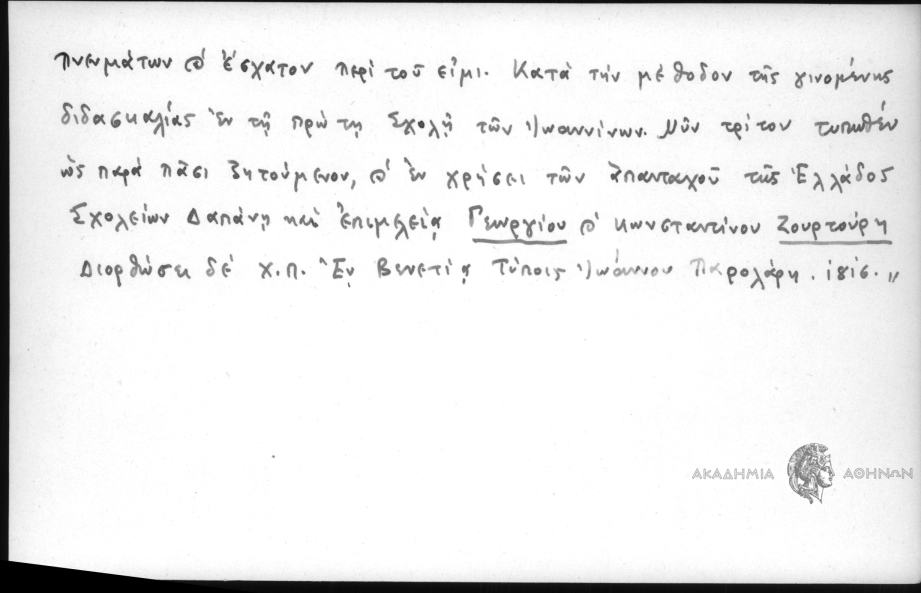 πνευμάτων ϗ ἔσχατον περὶ τοῦ εἰμι. Κατὰ τὴν μέθοδον τῆς γινομένης
διδασκαλίας ἐν τῇ πρώτῃ Σχολῇ τῶν Ἰωαννίνων. Νῦν τρίτον τυπωθὲν
ὡς παρὰ πᾶσι ζητούμενον, ϗ ἐν χρήσει τῶν ἁπανταχοῦ τῆς Ἑλλάδος
Σχολείων Δαπάνῃ καὶ ἐπιμελείᾳ Γεωργίου ϗ Κωνσταντίνου Ζουρτούρη
Διορθώσει δὲ Χ.Π. Ἐν Βενετίᾳ Τύποις Ἰωάννου Παρολάρη.
ΑΚΑΔΗΜΙΑ ΑΘΗΝΩΝ